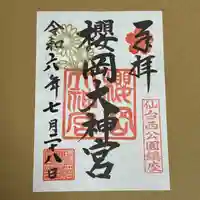 奉拝
仙台西公園鎮座
櫻岡大神宮
令和六年七月二十八日